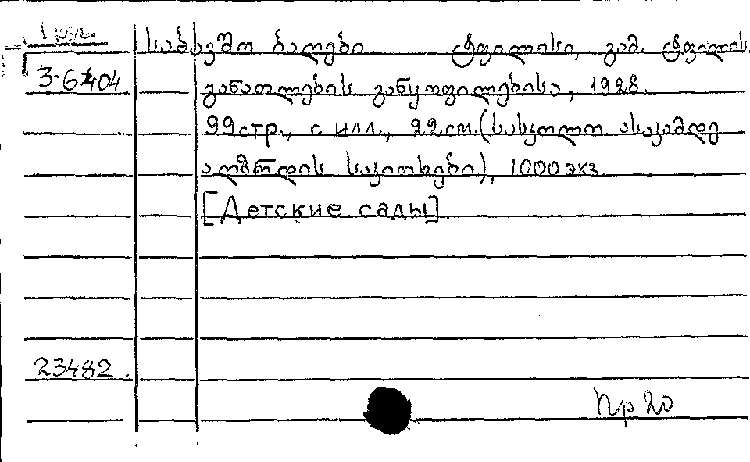 1 рус.
საბავშო ბაღები ტფილისი, გამ. ტფილის.
3-6404 განათლების განყოფილებისა, 1928.
22стр., с илл., 22см. (სასკოლო ასაკამდე
აღზრდის საკითხები), 1000 экз.
[Детские сады]
23482.
Пр 20